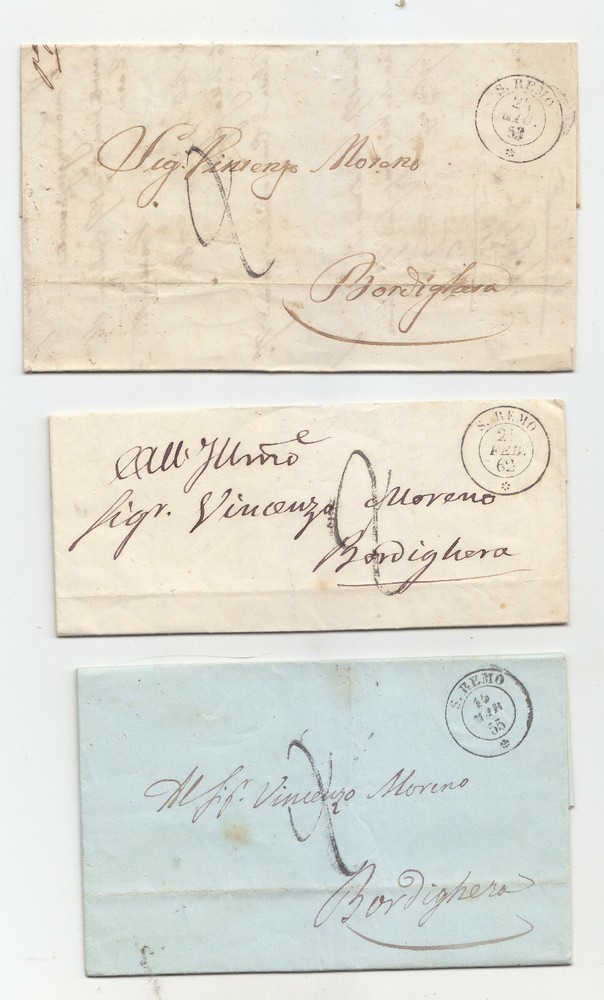 S. REMO
53
Sig. Vincenzo Moreno
2
Bordighera
S. REMO
21
FEB.
62
All' Illmo
Sigr. Vincenzo Moreno
2
Bordighera
S. REMO
MAR
55
Al Sigr. Vincenzo Moreno
2
Bordighera